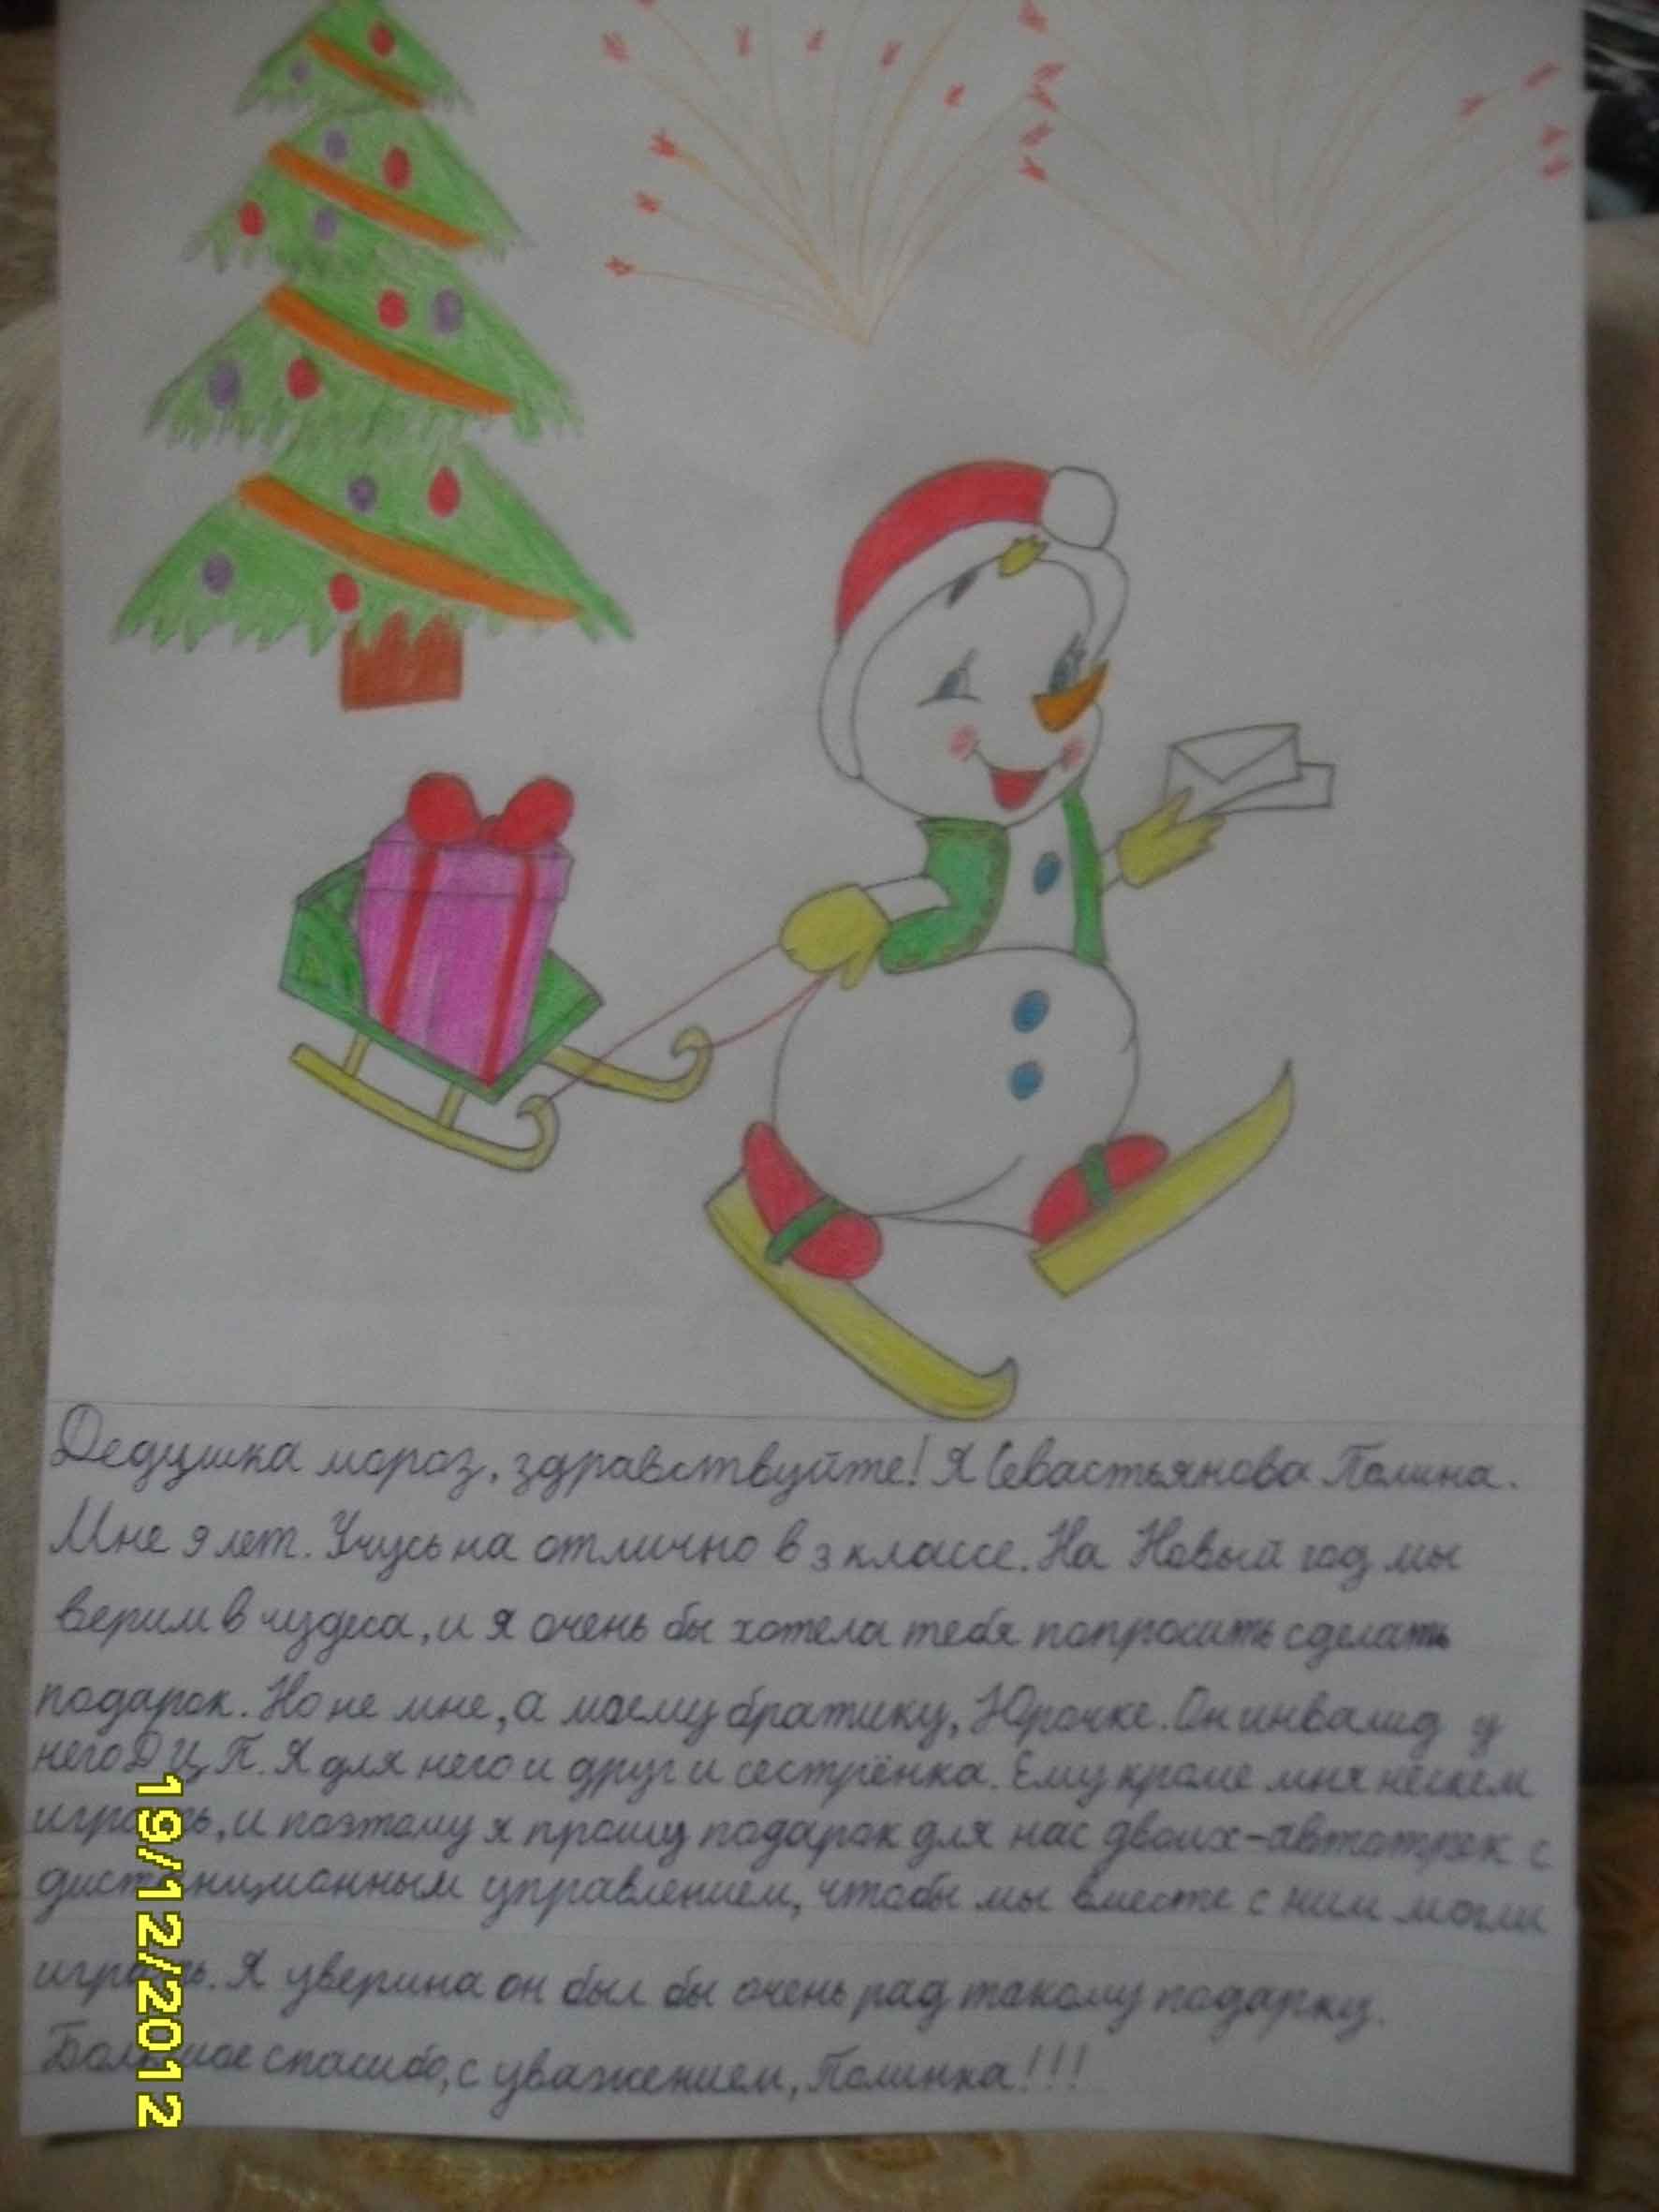 Дедушка мороз, здравствуйте! Я Севастьянова Полина.
Мне 9 лет. Учусь на отлично в 3 классе. На Новый год мы
верим в чудеса, и я очень бы хотела тебя попросить сделать
подарок. Но не мне, а моему братику, Юрочке. Он инвалид у
него ДЦП. Я для него и друг и сестрёнка. Ему кроме меня не с кем
играть, и поэтому я прошу подарок для нас двоих-автотрек с
дистанционным управлением, чтобы мы вместе с ним могли
играть. Я уверина он был бы очень рад такому подарку.
Большое спасибо, с уважением, Полинка!!!
19/12/2012